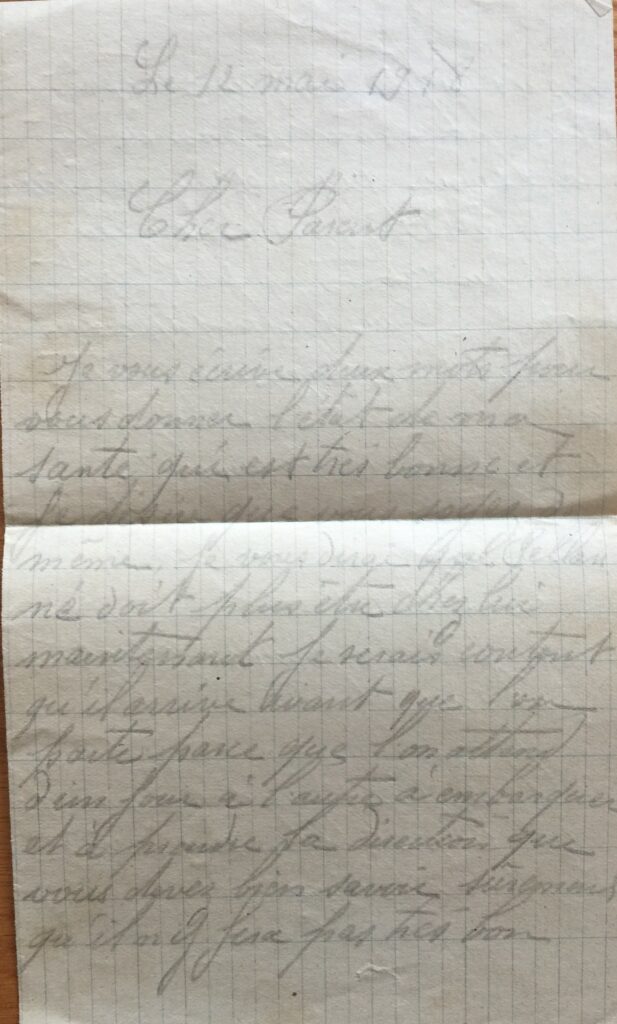 Le 12 mai 1918
Cher Parent
Je vous écrive deux mots pour
vous donner l'état de ma
santé, qui est très bonne et
je désire que vous soyez de
même, Je vous dirai que
ne doit plus être chez lui
maintenant Je serais content
qu'il arrive avant que l'on
parte parce que l'on attend
d'un jour à l'autre à embarquer
et à prendre la direction que
vous devez bien savoir
qu'il n y fera pas très bon